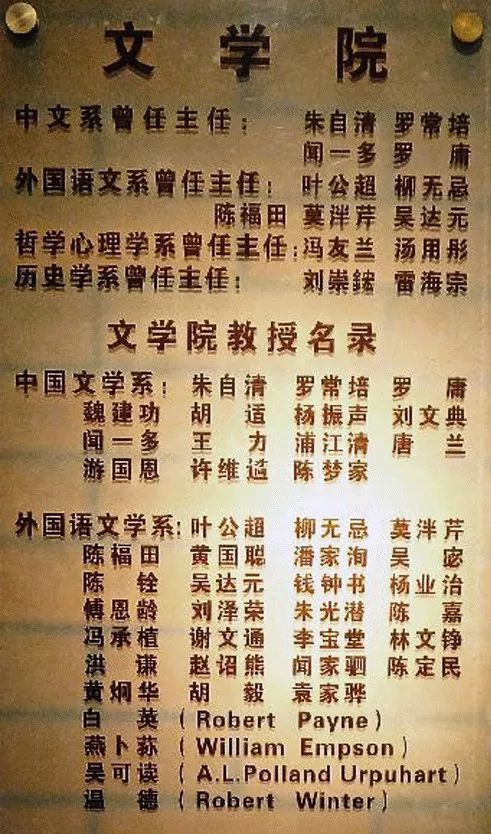 文学院
中文系曾任主任： 朱自清 罗常培
闻一多 罗 庸
外国语文系曾任主任： 叶公超 柳无忌
陈福田 莫泮芹 吴达元
哲学心理学系曾任主任：冯友兰 汤用彤
历史学系曾任主任： 刘崇鋐 雷海宗
文学院教授名录
中国文学系： 朱自清 罗常培 罗 庸
魏建功 胡 适 杨振声 刘文典
闻一多 王 力 浦江清 唐 兰
游国恩 许维遹 陈梦家
外国语文学系：叶公超 柳无忌 莫泮芹
陈福田 黄国聪 潘家洵 吴 宓
陈 铨 吴达元 钱钟书 杨业治
傅恩龄 刘泽荣 朱光潜 陈 嘉
冯承植 谢文通 李宝堂 林文铮
洪 谦 赵诏熊 闻家驷 陈定民
黄炯华 胡 毅 袁家骅
白 英（Robert Payne）
燕卜荪（William Empson）
吴可读（A.L.Polland Urpuhart）
温 德（Robert Winter）